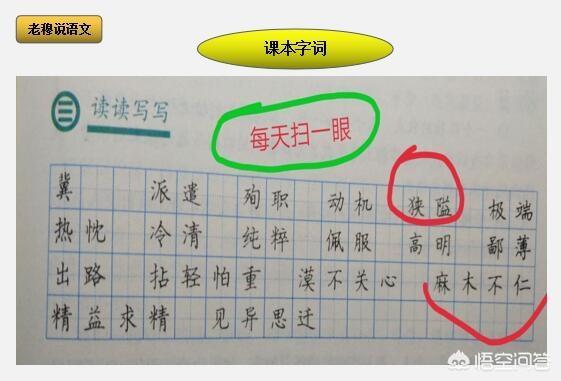 老穆说语文
课本字词
三 读读写写
每天扫一眼
冀 派遣 殉职 动机 狭隘 极端
热忱 冷清 纯粹 佩服 高明 鄙薄
出路 拈轻怕重 漠不关心 麻木不仁
精益求精 见异思迁
悟空问答